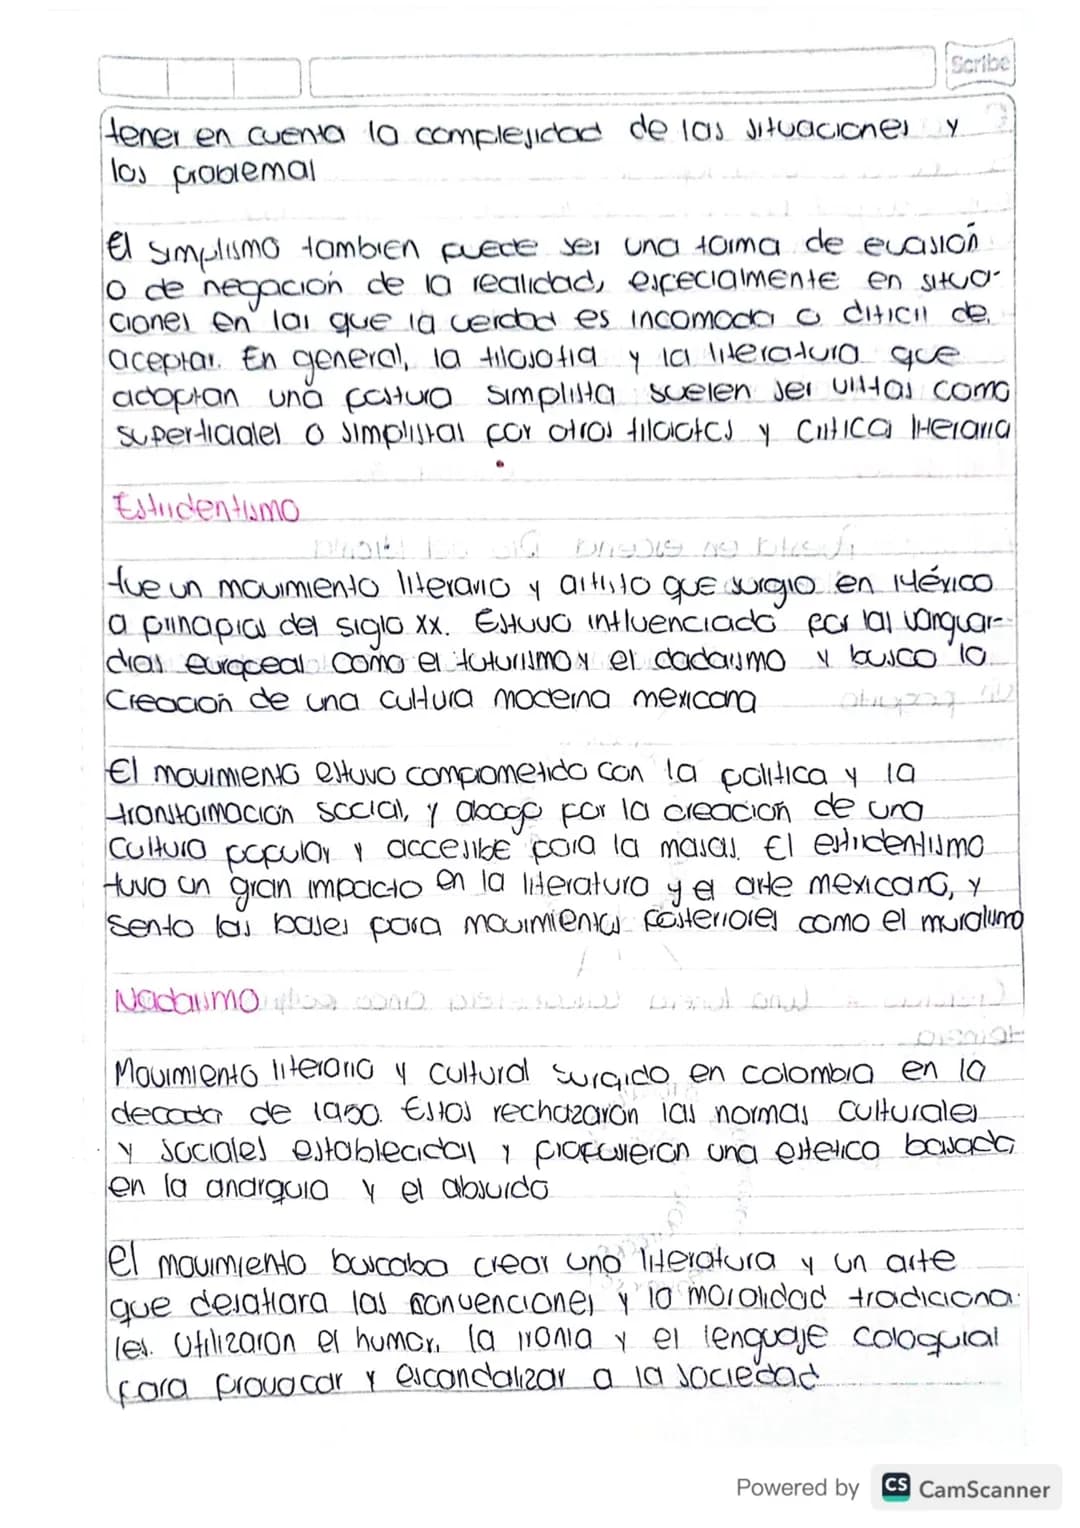 Scribe
tener en cuenta la complejidad de las situaciones y
los problemas
El simplismo tambien puede ser una forma de evasión
o de negación de la realidad, especialmente en situa-
ciones en las que la verdad es incomoda o dificil de
aceptar. En general, la filosofia y la literatura que
adoptan una postura simplista suelen ser vistas como
superficiales o simplistas por otros filosofos y critica literaria
Estridentismo
fue un movimiento literario y artisto que surgio en México
a principios del siglo xx. Estuvo influenciado por las vanguar-
dias europeas como el futurismo y el dadaismo y busco la
Creación de una cultura moderna mexicana
El movimiento estuvo comprometido con la politica y la
transformación social, y abogo por la creación de una
Cultura popular y accesible para la masas. El estridentismo
tuvo un gran impacto en la literatura y el arte mexicano, y
sento las bases para movimientos posteriores como el muralismo
Nadaismo
Movimiento literario y cultural surgido en colombia en la
decada de 1950. Estos rechazarón las normas culturales
y sociales establecidas y propusieron una estetica basada
en la anarquia y el absurdo
El movimiento buscaba crear una literatura y un arte
que desafiara las convenciones y la moralidad tradiciona-
les. Utilizaron el humor, la ironia y el lenguaje coloquial
para provocar y escandalizar a la sociedad
Powered by CS CamScanner